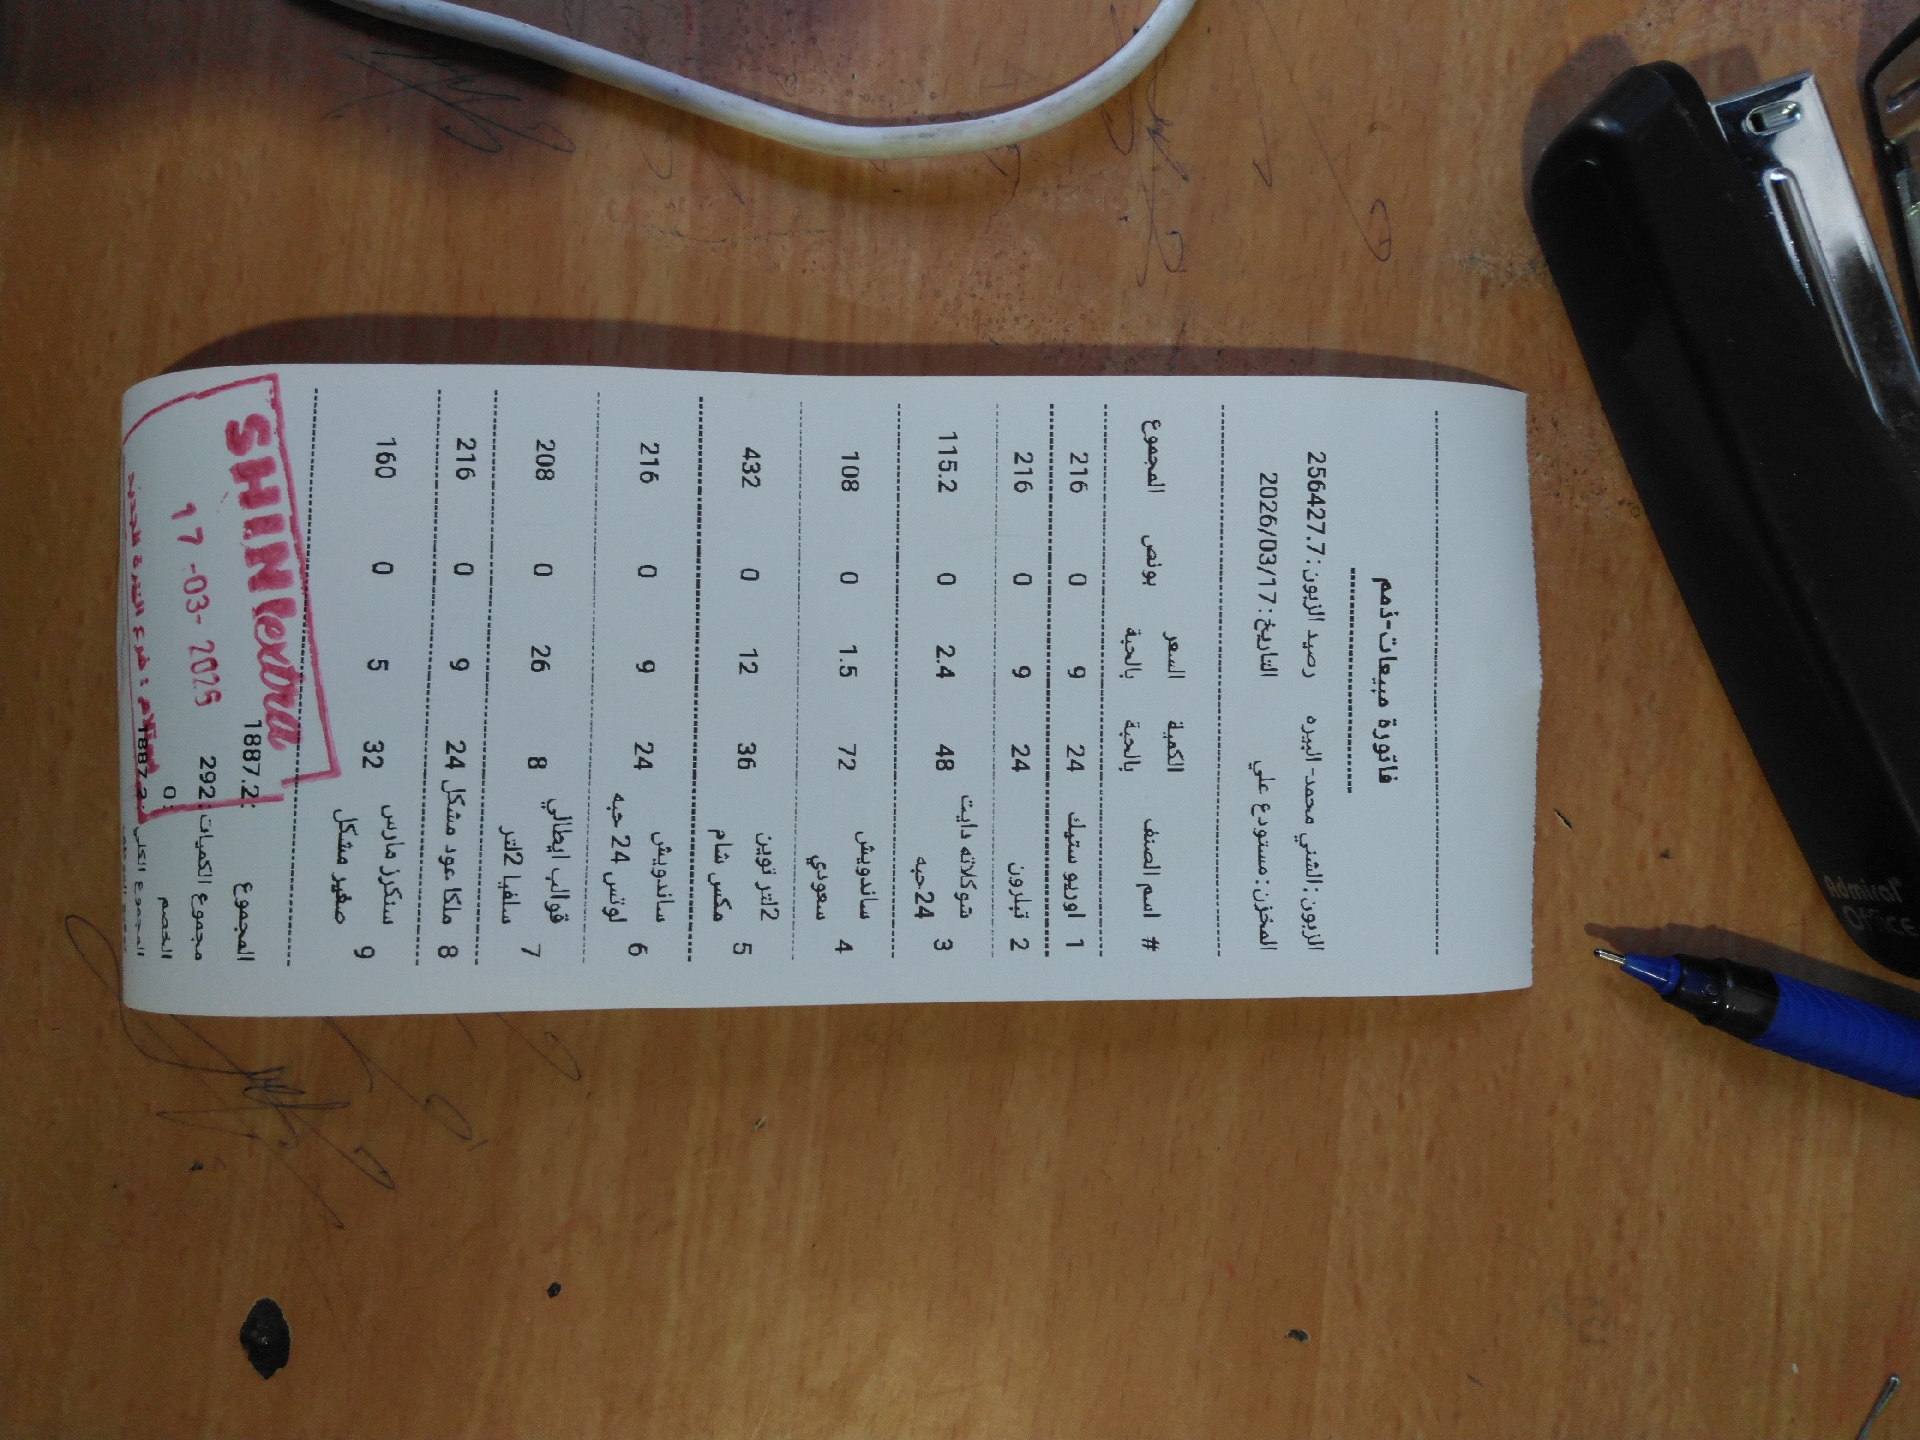 فاتورة مبيعات-ذمم
الزبون: الشني محمد- البيره رصيد الزبون: 256427.7
المخزن: مستودع علي التاريخ: 2026/03/17
# اسم الصنف الكمية بالحبة السعر بالحبة بونص المجموع
1 اوريو ستيك 24 9 0 216
2 تبلرون 24 9 0 216
3 شوكلاته دايت 48 2.4 0 115.2
24حبه
4 ساندويش 72 1.5 0 108
سعودي
5 2لتر توين 36 12 0 432
مكس شام
6 ساندويش 24 9 0 216
لوتس 24 حبه
7 قوالب ايطالي 8 26 0 208
سلفيا 2لتر
8 ملكا عود مشكل 24 9 0 216
9 سنكرز مارس 32 5 0 160
صغير مشكل
المجموع :1887.2
مجموع الكميات :292
الخصم :0
المجموع الكلي :1887.2
SHINI extra
17 -03- 2026